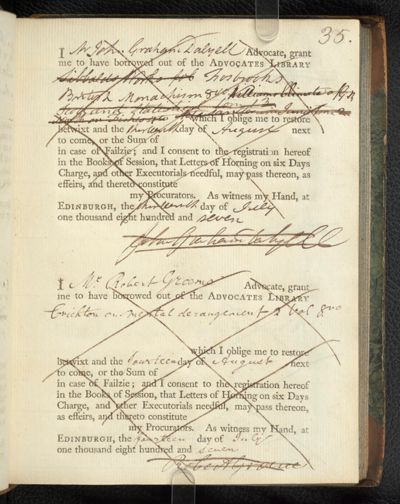 35.
I Mr Joh. Graham Dalyell Advocate, grant
me to have borrowed out of the ADVOCATES LIBRARY
Fosbrooke's
British Monachism 8vo
which I oblige me to restore
betwixt and the thirteenth day of August next
to come, or the Sum of
in case of Failzie; and I consent to the registration hereof
in the Books of Session, that Letters of Horning on six Days
Charge, and other Executorials needful, may pass thereon, as
effeirs, and thereto constitute
my Procurators. As witness my Hand, at
EDINBURGH, the thirteenth day of July
one thousand eight hundred and seven
John Graham Dalyell
I Mr. Robert Graeme Advocate, grant
me to have borrowed out of the ADVOCATES LIBRARY
Crichton on mental derangement 2 vol 8vo
which I oblige me to restore
betwixt and the fourteen day of August next
to come, or the Sum of
in case of Failzie; and I consent to the registration hereof
in the Books of Session, that Letters of Horning on six Days
Charge, and other Executorials needful, may pass thereon,
as effeirs, and thereto constitute
my Procurators. As witness my Hand, at
EDINBURGH, the fourteen day of July
one thousand eight hundred and seven
Robert Graeme